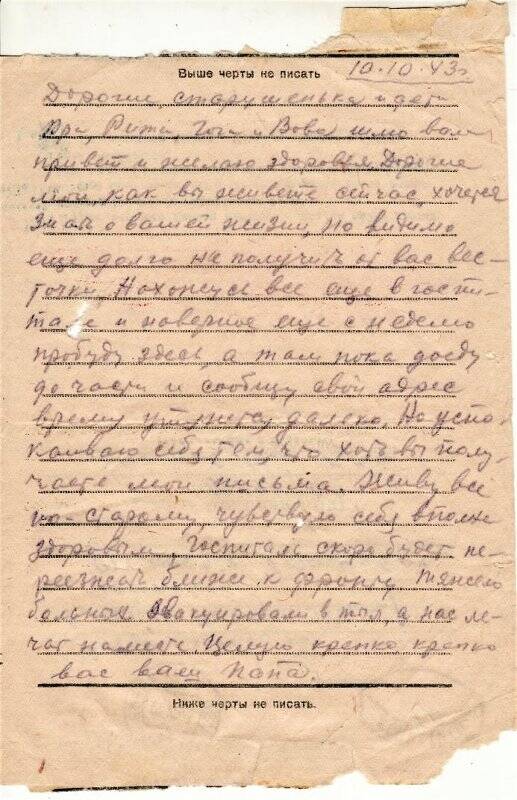 Выше черты не писать 10.10.43г.
Дорогие, старушенька и дети
Ира, Рита, Гога и Вова шлю вам
привет и желаю здоровья. Дорогие
мои, как вы живете сейчас, хочется
знать о вашей жизни, но видимо
еще долго не получить от вас вес-
точки. Нахожусь все еще в госпи-
тале и наверное еще с неделю
пробуду здесь, а там пока доеду
до части и сообщу свой адрес
время далеко. Но успо-
каиваю себя тем, что хоть вы полу-
чаете мои письма. Живу все
по старому, чувствую себя вполне
здоровым. Госпиталь скоро будет пе-
реезжать ближе к фронту, тяжело
больных эвакуировали в тыл, а нас ле-
чат на месте. Целую крепко крепко
вас ваш папа.
Ниже черты не писать.